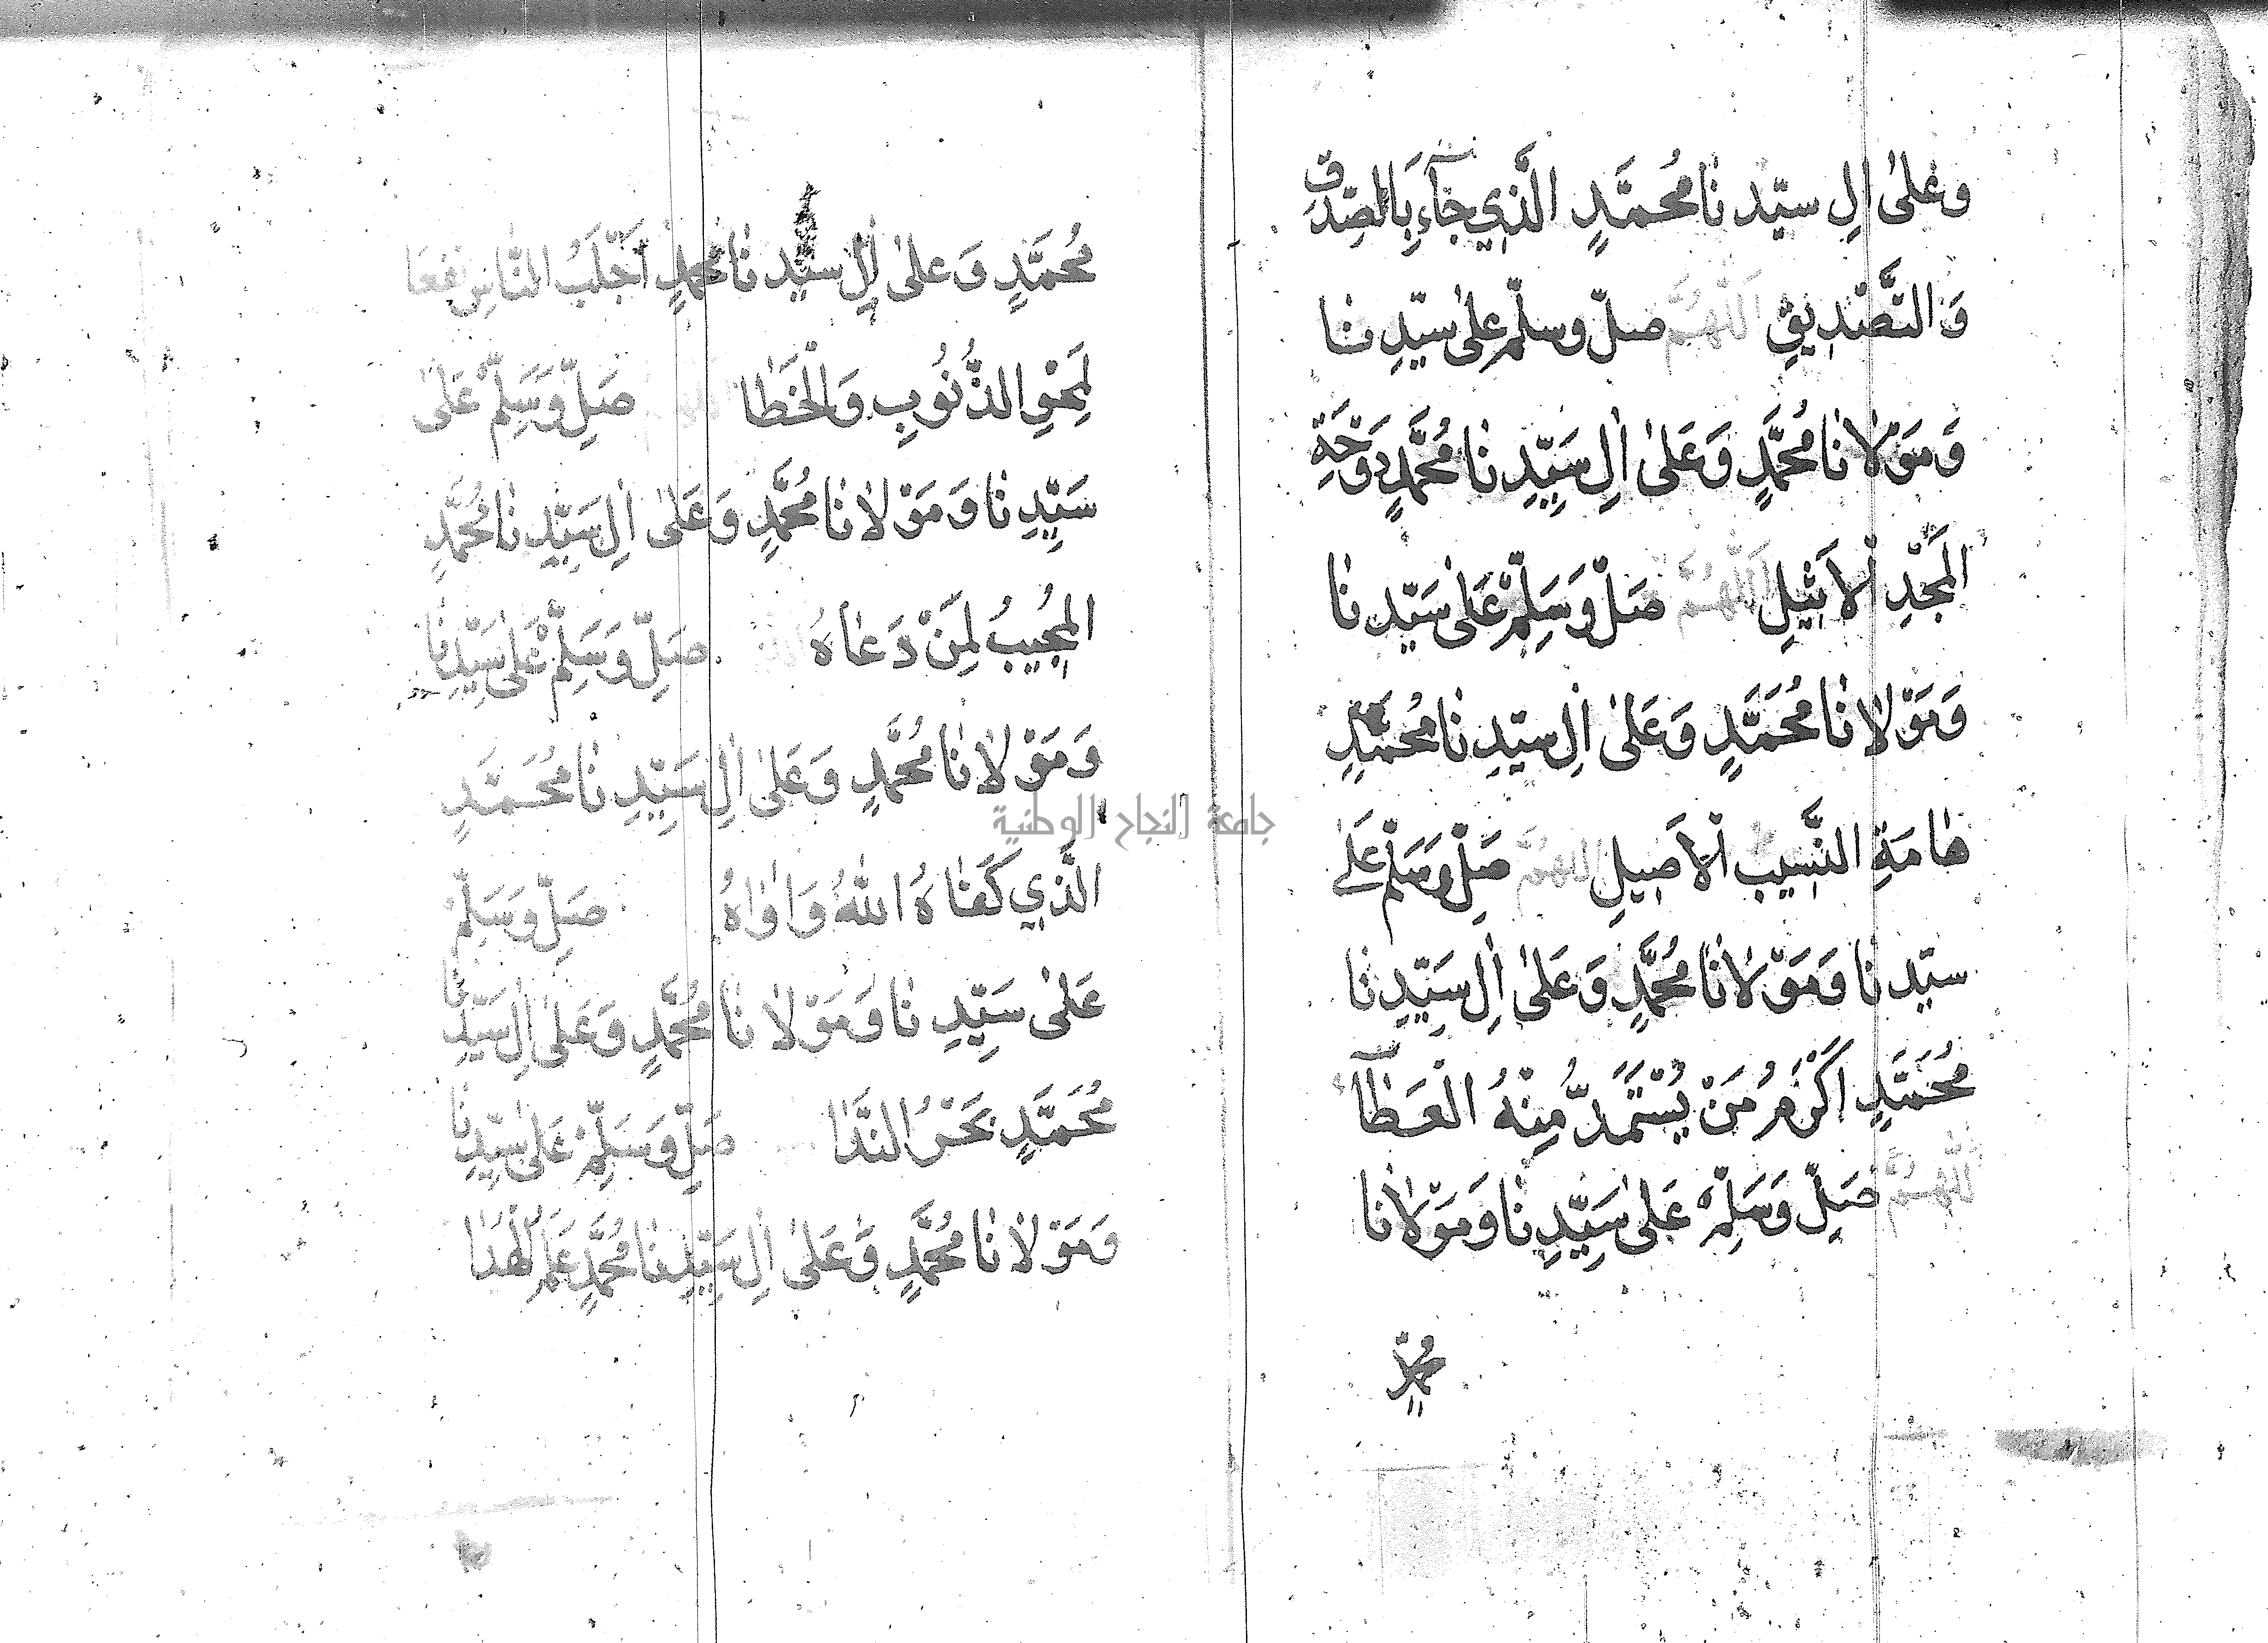 وعلىٰ اٰلِ سيّدنا محمَّدٍ الَّذِي جَآءَ بِالصِّدْقِ
وَالتَّصْدِيقِ اَللّٰهُمَّ صلّ وسلّم على سيّدِنا
وَمَوْلَانَا مُحَمَّدٍ وَعَلىٰ اٰلِ سَيِّدِنَا مُحَمَّدٍ دَوْحَةِ
المَجْدِ الْاَثِيلِ اَللّٰهُمَّ صَلّ وَسَلِّمْ عَلىٰ سَيّدِنَا
وَمَوْلَانَا مُحَمَّدٍ وَعَلىٰ اٰلِ سيّدِنَا مُحمَّدٍ
هَامَةِ النَّسِيبِ الْاَصِيلِ اللهُمَّ صَلّ وَسَلّمْ عَلى
سيّدنا وَمَوْلَانَا مُحَمَّدٍ وَعَلىٰ اٰلِ سَيِّدِنَا
مُحَمَّدٍ اَكْرَمُ مَنْ يُسْتَمَدُّ مِنْهُ الْعَطَآ
اللّهُمَّ صَلِّ وَسَلِّمْ عَلىٰ سَيِّدِنَا وَمَوْلَانَا
مُحَمَّدٍ
مُحمَّدٍ وَعلىٰ اٰلِ سيّدنا محمدٍ اَجْلَبُ النَّاسِ نفعَا
لِمَحْوِ الذُّنُوبِ وَالْخَطَا صَلِّ وَسَلِّمْ عَلىٰ
سَيِّدِنَا وَمَوْلَانَا مُحَمَّدٍ وَعَلىٰ اٰلِ سَيِّدِنَا مُحَمَّدٍ
المُجِيبُ لِمَنْ دَعَاهُ صَلِّ وَسَلِّمْ عَلىٰ سَيِّدِنَا
وَمَوْلَانَا مُحَمَّدٍ وَعَلىٰ اٰلِ سَيِّدِنَا مُحَمَّدٍ
الَّذِي كَفَاهُ اللّٰهُ وَاٰوَاهُ صَلِّ وَسَلِّمْ
عَلىٰ سَيِّدِنَا وَمَوْلَانَا مُحَمَّدٍ وَعَلىٰ اٰلِ سَيّدِنَا
مُحَمَّدٍ بَحْرُ النَّدَا صَلِّ وَسَلِّمْ عَلىٰ سَيّدِنَا
وَمَوْلَانَا مُحَمَّدٍ وَعَلىٰ اٰلِ سَيِّدِنَا مُحَمَّدٍ عَلَمِ الْهُدَا
جامعة النجاح الوطنية